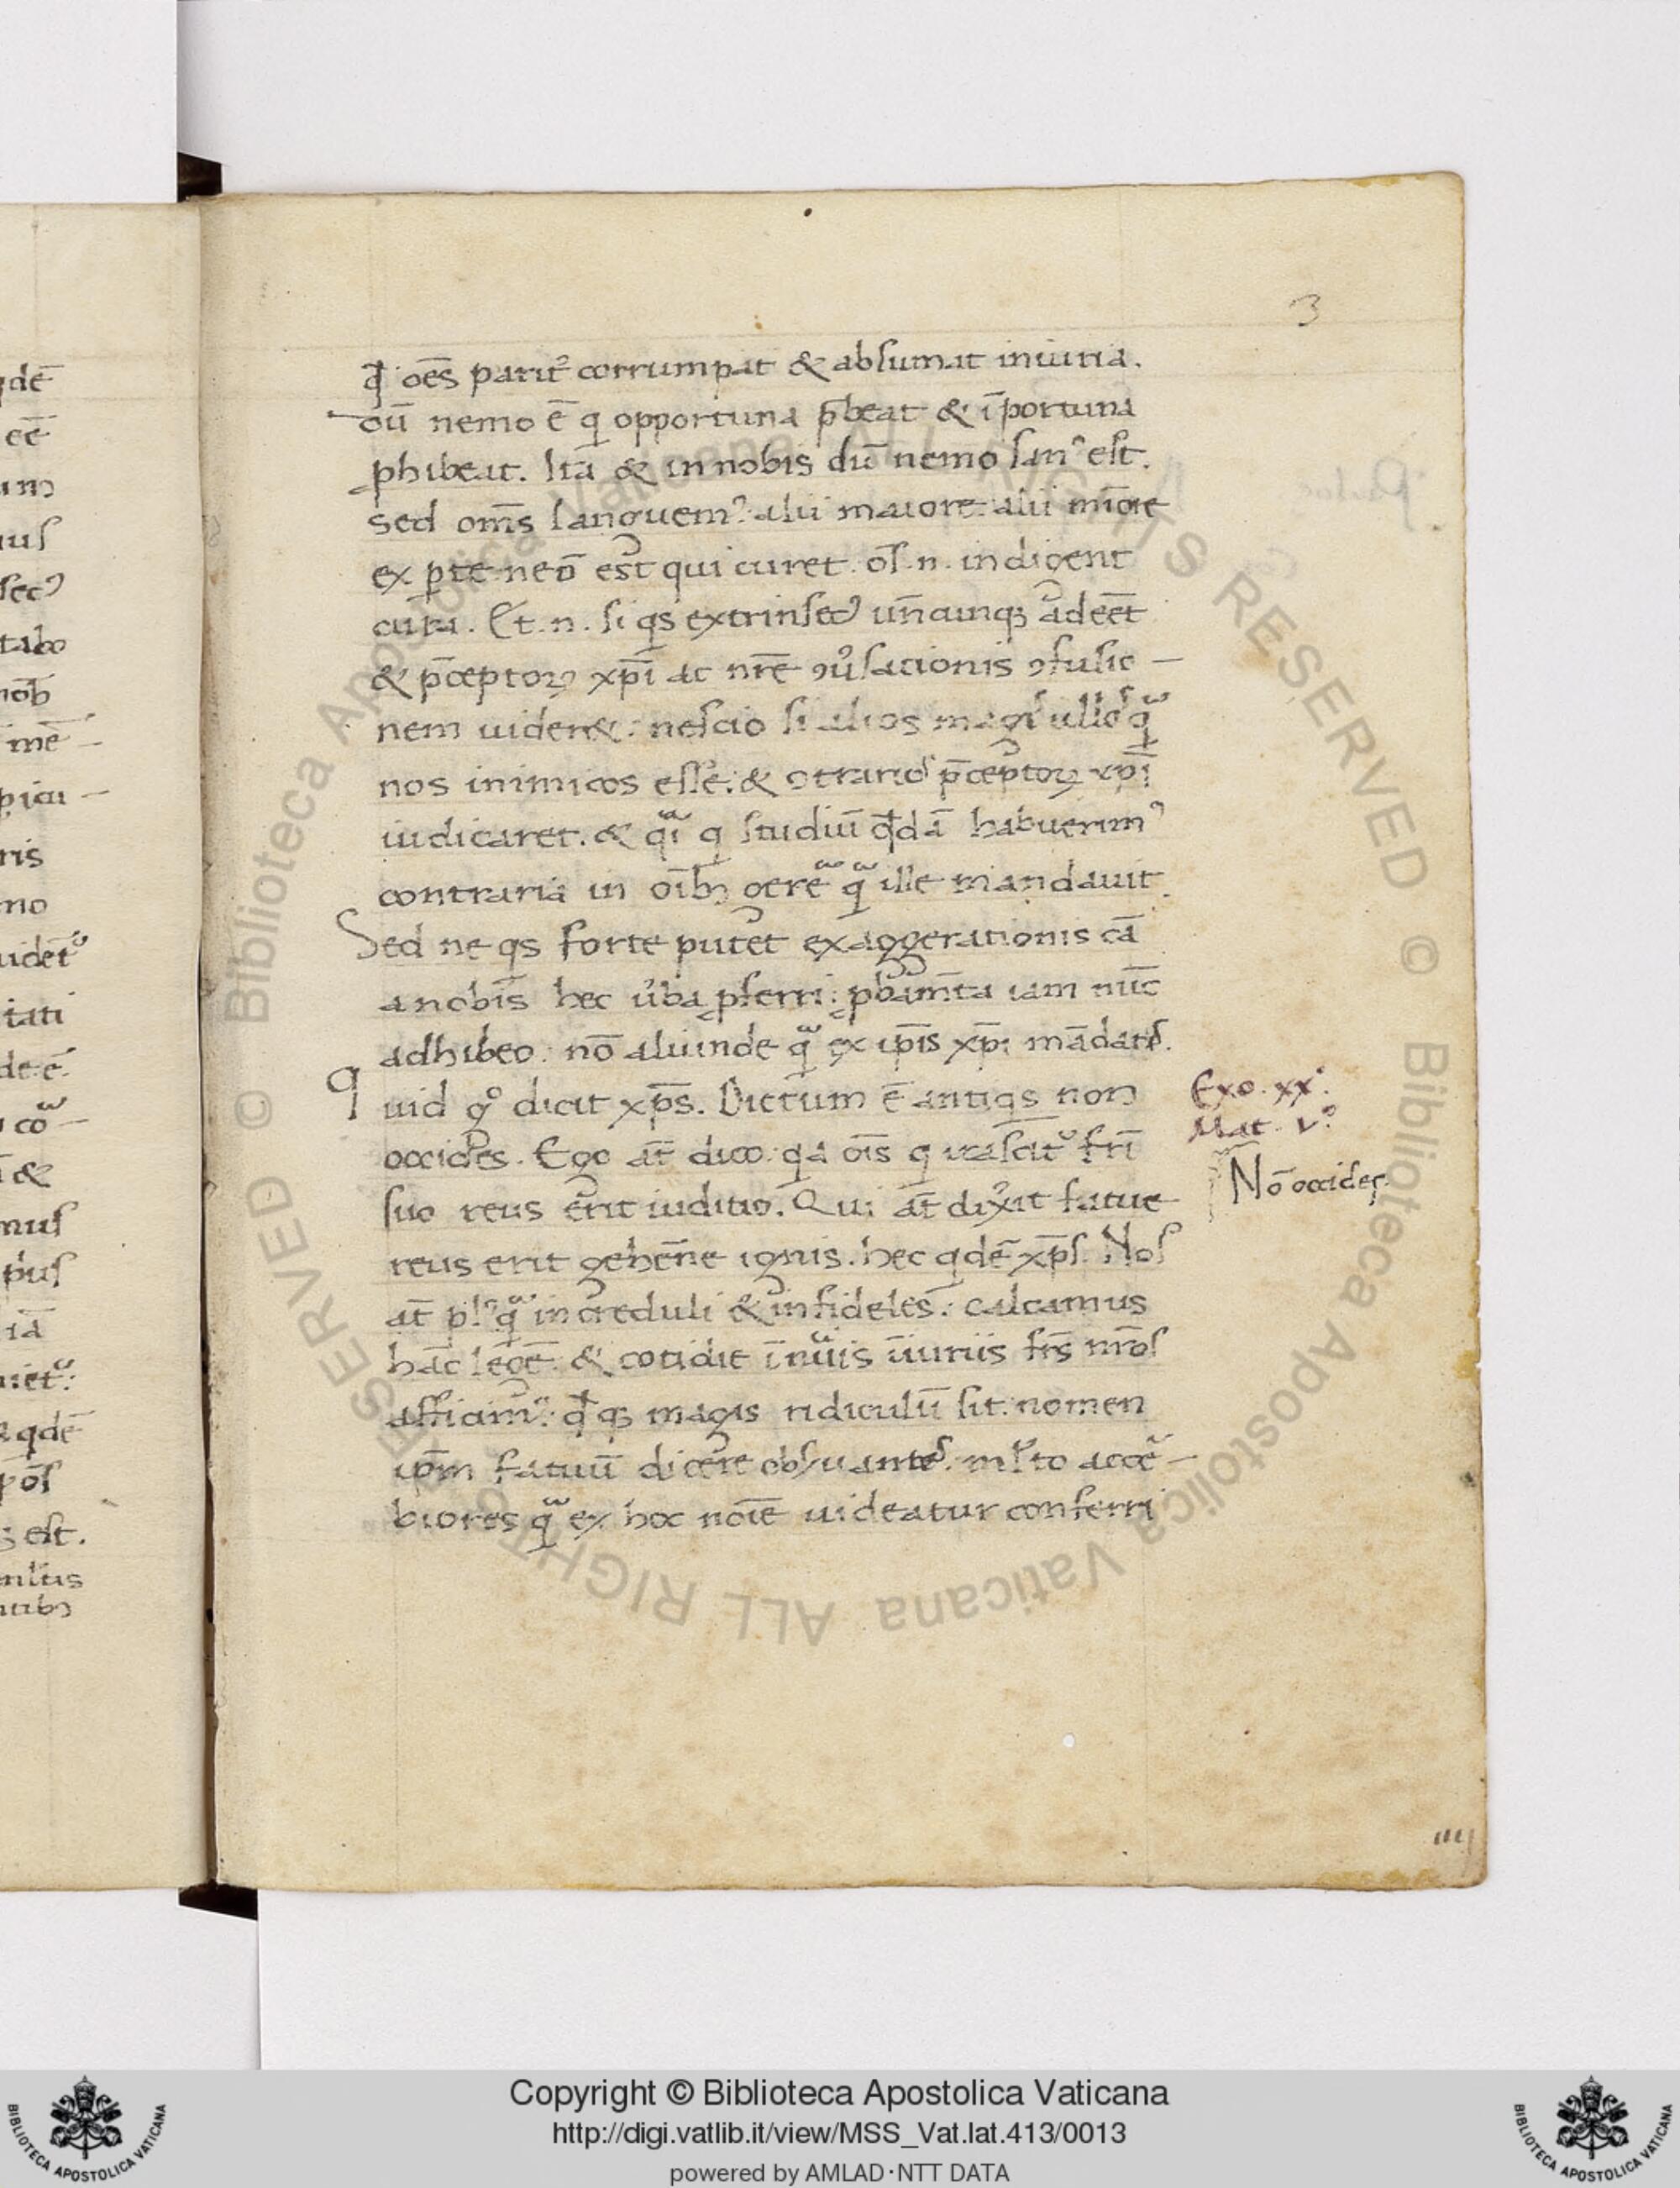 3
qđ oēs parit᷑ corrumpat & absumat iniuria.
cū nemo ē q opportuna p̄beat & īportuna
ꝓhibeat. Ita & in nobis dū nemo sanꝰ est.
sed om̄s languemꝰ: alii maiore: alii mīore
ex ꝑte: neō est qui curet. oſ̄ .n. indigent
cura. Et .n. si qs extrinsecꝰ un̄cunqꝫ adeēt
& p̄ceptoꝝ xp̄i ac nr̄e ꝯu᷑sationis ꝯfusio-
nem uider&: nescio si alios magͥs ulloˢ qᷓ
nos inimicos esse: & ꝯtrarioˢ p̄ceptoꝝ xp̄i
iudicaret. & qᷓi q studiū qđdā habuerimꝰ
contraria in oībꝫ gerē qᷓ ille mandauit.
Sed ne qs forte putet exaggerationis cā
a nobis hec u᷑ba ꝓferri: ꝓbam̄ta iam nūc
adhibeo: nō aliunde qᷓ ex ip̄is xp̄i mādatiˢ.
Quid gͦ dicit xp̄s. Dictum ē antiqs non
occides. Ego at̄ dico: qa oīs q irascit᷑ fr̄i
suo reus erit iuditio. Qui at̄ dix᷑it fatue
reus erit gehēne ignis. hec qdē xp̄s. Nos
at̄ plꝰqᷓ increduli & infideles: calcamus
hāc legē: & cotidie īnūis iniuriis fr̄s nr̄os
afficimꝰ: qđqꝫ magis ridiculū sit: nomen
ip̄m fatuū dicere obſuanteˢ. ml̄to acce-
biores qᷓ ex hoc noīe uideatur conferri
Exo. xxͦ.
Mat. vͦ.
Nō occides.
qdē
eē
um
uus
secꝰ
tabo
nob̄
mē -
picu -
ris
mo
uidet᷑
tati
de ē.
co -
&
mus
pus
iā
qdē
est.
Copyright © Biblioteca Apostolica Vaticana
http://digi.vatlib.it/view/MSS_Vat.lat.413/0013
powered by AMLAD·NTT DATA
BIBLIOTECA APOSTOLICA VATICANA
BIBLIOTECA APOSTOLICA VATICANA
© Biblioteca Apostolica Vaticana ALL RIGHTS RESERVED © Biblioteca Apostolica Vaticana ALL RIGHTS RESERVED